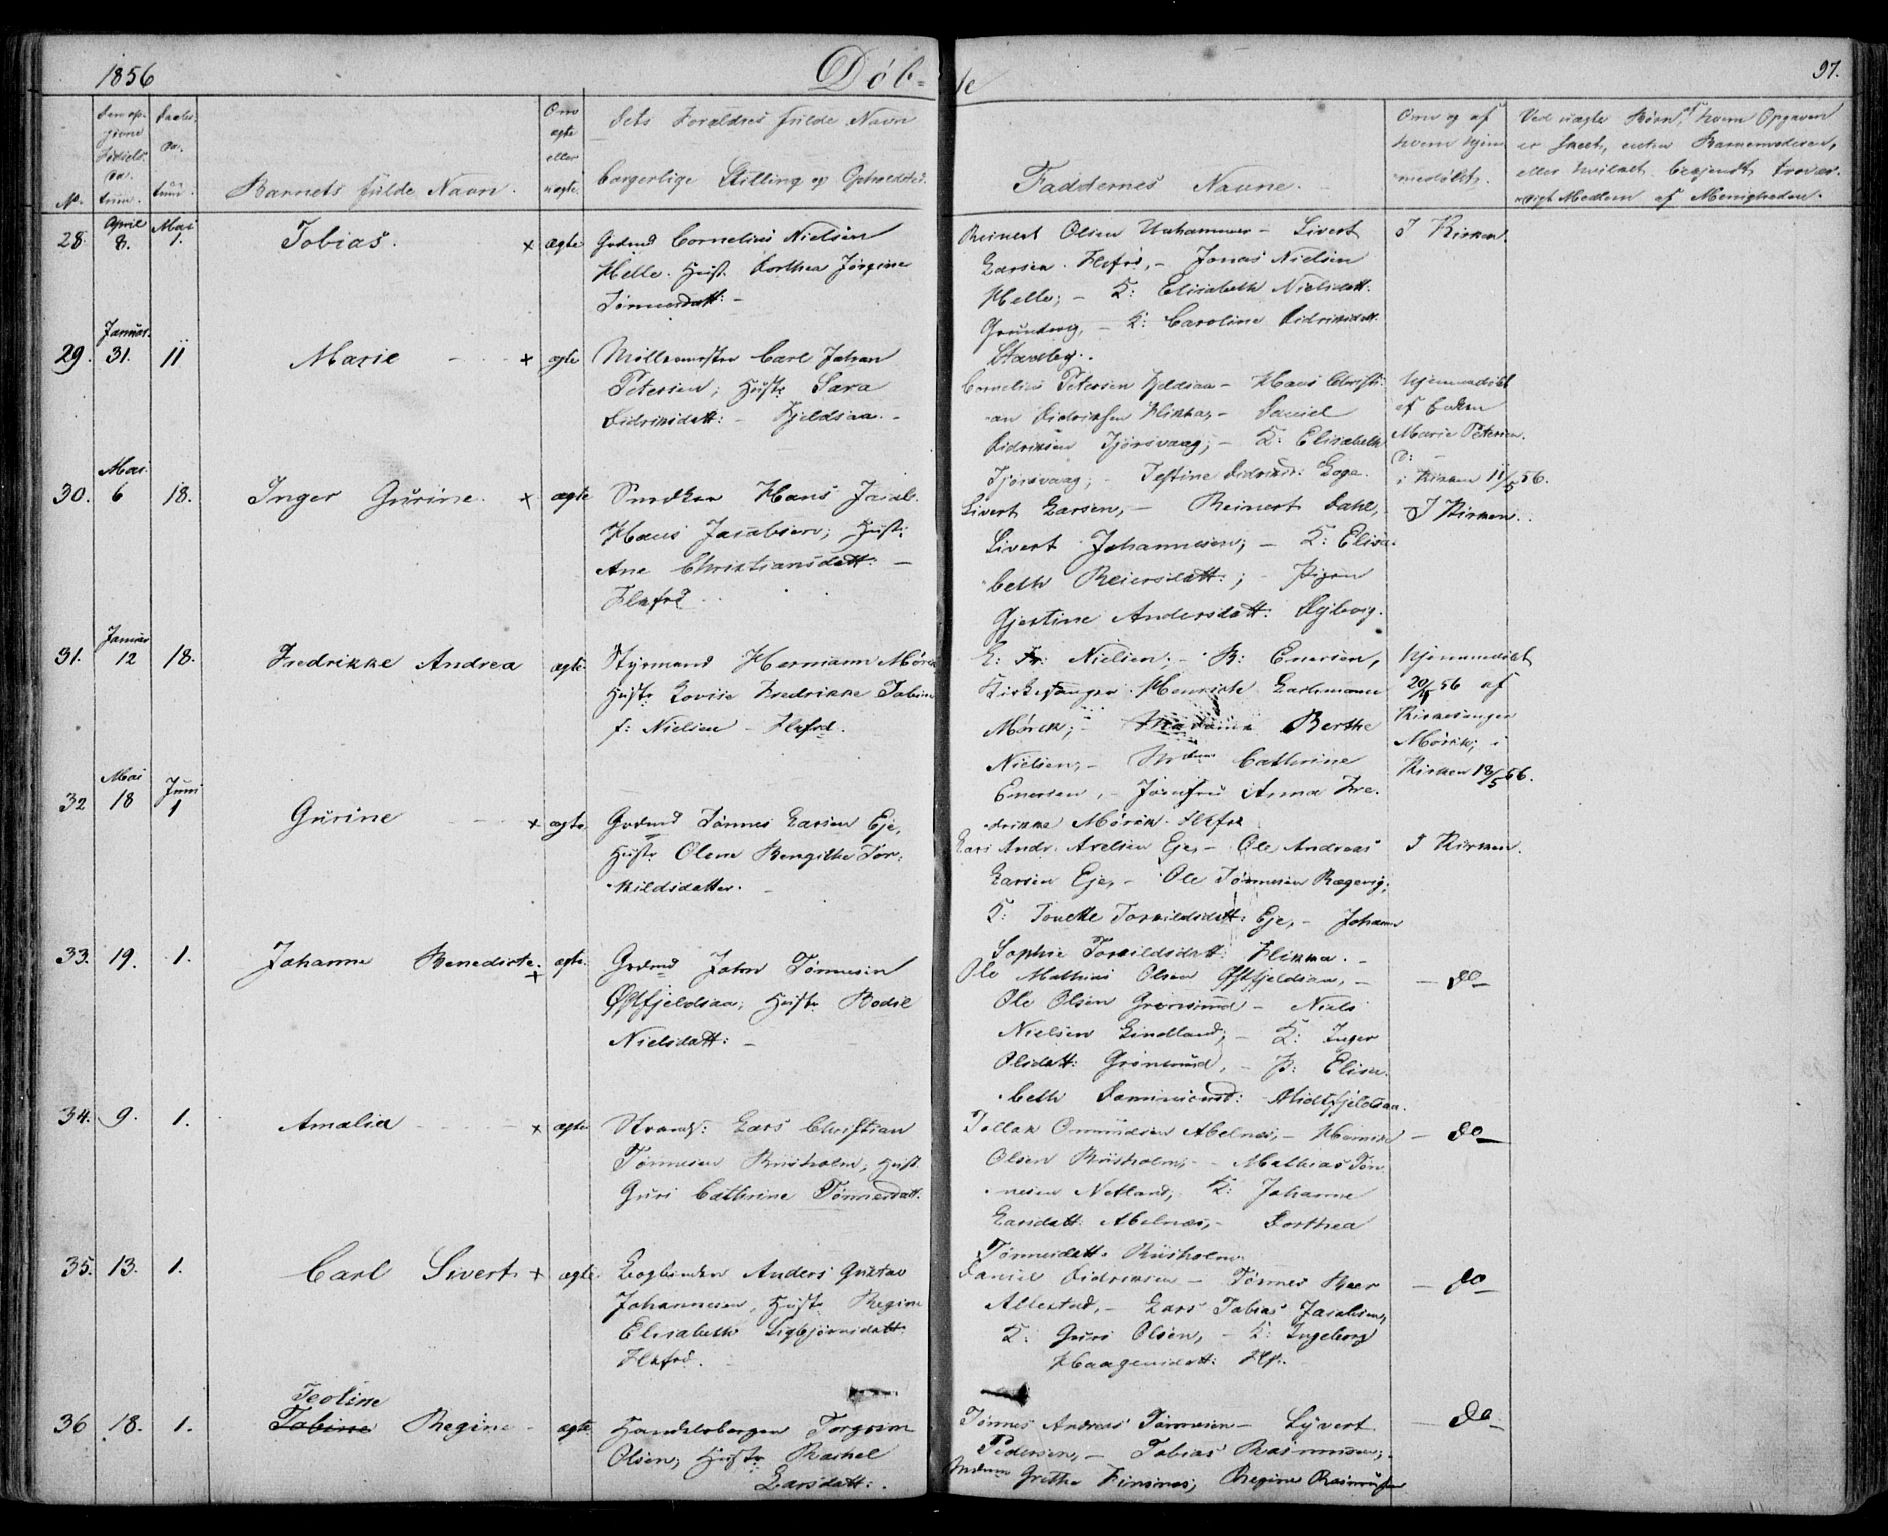 1856
Døb-
te
97.
No.
Den op-
givne
Fødsels-
Da-
tum.
Daabs-
Da-
tum
Barnets fulde Navn.
Om
ægte
eller
uægte.
Dets Forældres fulde Navn
borgerlige Stilling og Opholdsted.
Faddernes Navne.
Om og af
hvem hjem-
medøbt.
Ved uægte Børn, af hvem Opgaven
er skeet, enten Barnemoderen,
eller hvilket bekjendt trovær-
digt Medlem af Menigheden.
28.
April
8.
Mai
1.
Tobias.
×
ægte
Gdmd Cornelius Nielsen
Helle. Hust. Dorthea Jørgine
Tønnesdatt: -
Reinert Olsen Urhammer - Sivert
Larsen Flefrd, - Jonas Nielsen
Helle; - K: Elisabeth Nielsdatt.
Grundvig, - K: Caroline Didriksdatt.
Stordby.
I Kirken.
29.
Januar.
31.
11
Marie
×
ægte
Møllemester Carl Johan
Petersen; Hustr. Sara
Didriksdatt: - Fjeldsaa. -
Cornelius Petersen Fjeldsaa - Hans Christi-
an Didriksen Flikka, - Daniel
Didriksen Tjørsvaag; - K: Elisabeth
Tjørsvaag; - Testine Didriksd: Loge.
Hjemmedøbt
af
Marie Petersen.
D: -
i Kirken 11/5 56.
30.
Mai.
6
18.
Inger Gurine.
×
ægte
Snedker Hans Jacob
Hans Jacobsen; Hust:
Ane Christiansdatt: -
Flefrd.
Sivert Larsen, - Reinert Dahl,
Sivert Johannesen; - K: Elisa-
beth Reiersdatt:; - Pigen
Gjertine Andersdatt. Dybvig.
I Kirken.
31.
Januar
12
18.
Fredrikke Andrea
ægte
Styrmand Hermann Mørck
Hustr. Lovise Fredrikke Tobine
f: Nielsen - Flefrd.
E: Fr: Nielsen; - B: Enersen,
Kirkesanger Henrich Lachmann
Mørck; - Madame Berthe
Nielsen, - Mdme Cathrine
Enersen, - Jomfru Anna Fre-
drikke Mørck. Flefrd
Hjemmedøbt
20/4 56 af
Kirkesanger
Mørck; i
Kirken 18/5 56.
32
Mai
18
Juni
1
Gurine
×
ægte
Gdmd Tønnes Larsen Eje,
Hustr. Olene Bengitte Tor-
kildsdatter. -
Lars Andr. Axelsen Eje, - Ole Andreas
Larsen Eje, - Ole Tønnesen Rægevig;
K: Tonette Torkildsdatt: Eje, - Johanne
Sophie Torkildsdatt: Flikka. -
I Kirken.
33.
19.
1.
Johanne Benedicte.
×
ægte.
Gdmd John Tønnesen
Østfjeldsaa; Hustr. Bodil
Nielsdatt: -
Ole Mathias Olsen Østfjeldsaa, -
Ole Olsen Grønsund - Niels
Nielsen Lindland; - K: Inger
Olsdatt: Grønsund, - P: Elisa-
beth Danniensd: Midtfjeldsaa.
- do -
34.
9.
1.
Amalia
×
ægte
Strands: Lars Christian
Tønnesen Riisholm; Hust.
Guri Cathrine Tønnesdatt.
Tollak Omundsen Abelnæs, - Henrik
Olsen Riisholm, - Mathias Tøn-
nesen Netland, K: Johanne
Larsdatt: Abelnæs, - Dorthea
Tønnesdatt. Riisholm.
- do -
35.
13.
1.
Carl Sivert
×
ægte.
Bogbinder Anders Gustav
Johannesen, Hustr. Regine
Elisabeth Sigbjørnsdatt.
Flefrd.
Daniel Didriksen - Tønnes Reer
Allestad, - Lars Tobias Jacobsen,
K: Guri Olsen, - K: Ingeborg
Haagensdatt: Flf.
- do -
36
18.
1.
Teoline
Tobine Regine -
ægte
Handelsborger Torgrim
Olsen; Hustr. Rachel
Larsdatt:.
Tønnes Andreas Tønnesen - Syvert
Pedersen, - Tobias Rasmussen;
Mdme Grethe Finsnes; Regine Rasmussen
- do -